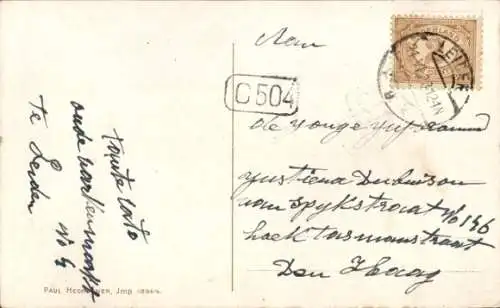 Aan
C 504
LEIDEN
de jonge juffrouw
Justiena Dubuison
van Spykstraat No 146
hoek Tasmanstraat
Den Haag
tante Cato
oude varkenmarkt
No 4
Te Leiden
PAUL HECKSCHER, Imp.